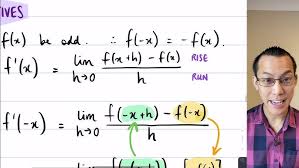 TIVES
f(x) be odd. ∴ f(-x) = -f(x).
f'(x) = lim h→0 f(x+h) - f(x) / h RISE RUN
f'(-x) = lim h→0 f(-x+h) - f(-x) / h
lim